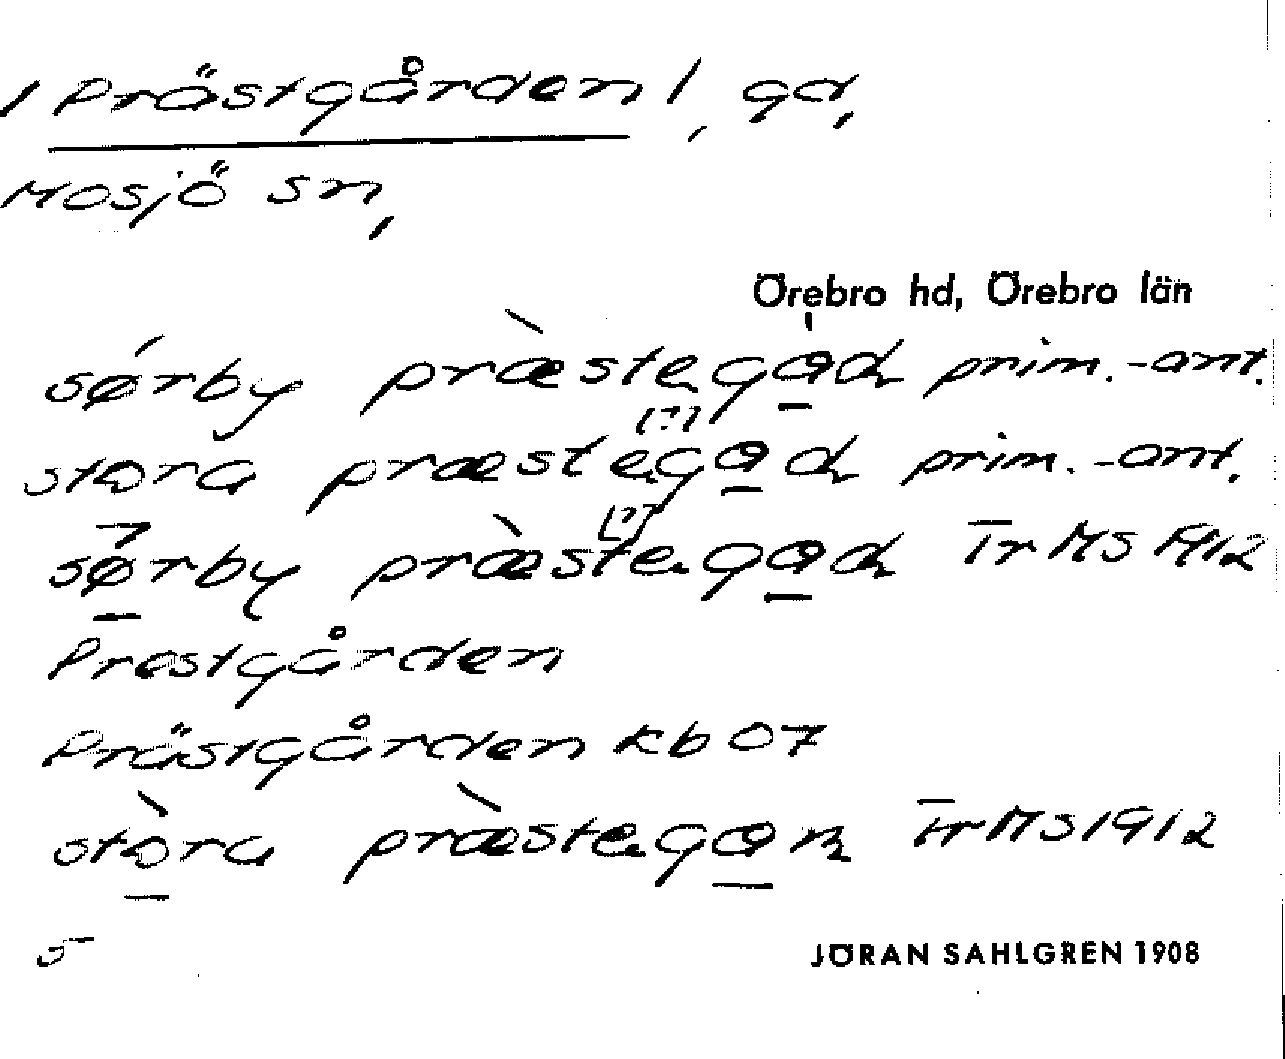 /Prästgården/, gd,
Mosjö sn,
Örebro hd, Örebro län
sørby præstegad prim.-ant.
[?]
stora præstegad prim.-ant.
[?]
sørby præstegad TrMS 1912
Prestgården
Prästgården kb 07
stora præstegan TrMS 1912
5
JÖRAN SAHLGREN 1908